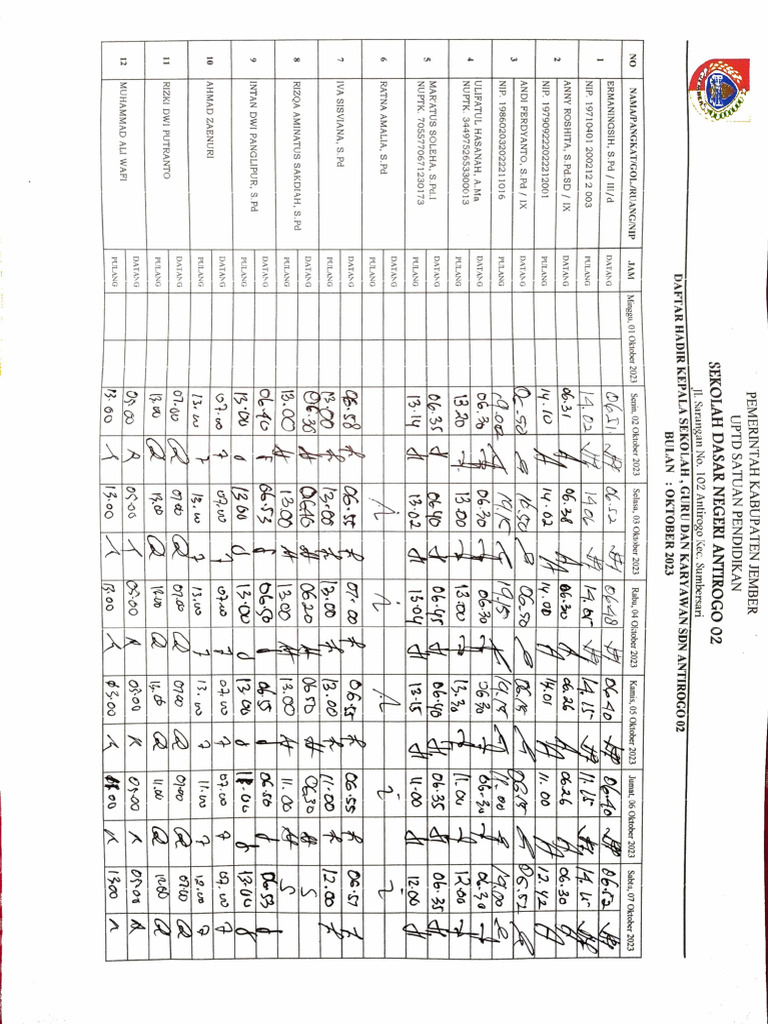 PEMERINTAH KABUPATEN JEMBER
UPTD SATUAN PENDIDIKAN
SEKOLAH DASAR NEGERI ANTIROGO 02
Jl. Sarangan No. 102 Antirogo Kec. Sumbersari
DAFTAR HADIR KEPALA SEKOLAH , GURU DAN KARYAWAN SDN ANTIROGO 02
BULAN : OKTOBER 2023
NO NAMA/PANGKAT/GOL./RUANG/NIP JAM Minggu, 01 Oktober 2023 Senin, 02 Oktober 2023 Selasa, 03 Oktober 2023 Rabu, 04 Oktober 2023 Kamis, 05 Oktober 2023 Jumat, 06 Oktober 2023 Sabtu, 07 Oktober 2023
1 ERMANINGSIH, S.Pd / III/d DATANG 06.51 06.52 06.48 06.40 06.40 06.52
NIP. 19710401 200212 2 003 PULANG 14.02 14.06 14.05 14.15 11.15 14.15
2 ANNY ROSHITA, S.Pd.SD / IX DATANG 06.31 06.38 06.30 06.26 06.26 06.30
NIP. 197909222022212001 PULANG 14.10 14.02 14.00 14.01 11.00 12.42
3 ANDI FERDYANTO, S.Pd / IX DATANG 06.50 06.50
NIP. 198602032022211016 PULANG 14.15
4 ULIFATUL HASANAH, A.Ma DATANG 06.30 06.30 06.30 06.30 06.30 06.30
NUPTK. 3449752653300013 PULANG 13.20 13.00 13.00 13.30 11.00 12.00
5 MAR'ATUS SOLEHA, S.Pd.I DATANG 06.35 06.40 06.45 06.40 06.35 06.35
NUPTK. 7055770671230173 PULANG 13.14 13.02 13.04 13.15 11.00 12.00
6 RATNA AMALIA, S.Pd DATANG
PULANG
7 IVA SISVIANA, S.Pd DATANG 06.58 06.55 07.00 06.55 06.55 06.57
PULANG 13.00 13.00 13.00 13.00 11.00 12.00
8 RIZQA AMINATUS SAKDIAH, S.Pd DATANG 06.35 06.40 06.20 06.50 06.30 S
PULANG 13.00 13.00 13.00 13.00 11.00 S
9 INTAN DWI PANGLIPUR, S.Pd DATANG 06.40 06.53 06.50 06.55 06.50 06.53
PULANG 13.00 13.00 13.00 13.00 11.00 13.00
10 AHMAD ZAENURI DATANG 07.00 07.00 07.00 07.00 07.00 07.00
PULANG 13.00 13.00 13.00 13.00 11.00 12.00
11 RIZKI DWI PUTRANTO DATANG 07.00 07.00 07.00 07.00 07.00 07.00
PULANG 13.00 13.00 13.00 13.00 11.00 12.00
12 MUHAMMAD ALI WAFI DATANG
PULANG 13.00 13.00 13.00 13.00 13.00